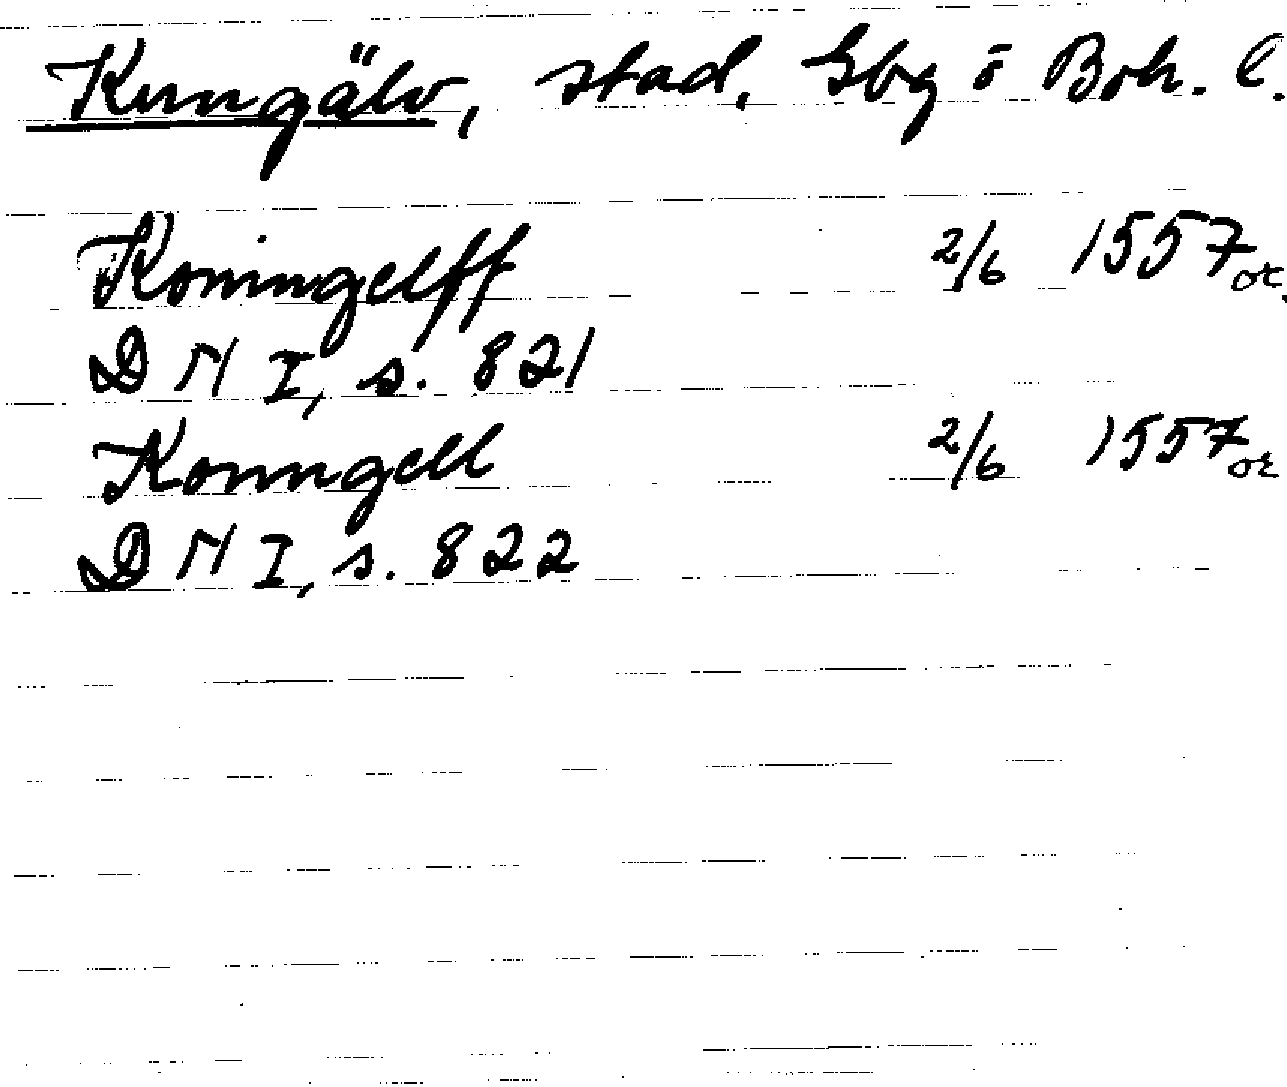 Kungälv, stad, Gbg ō Boh. l.
Koningelff 2/6 1557 or.
D N I, s. 821
Konngell 2/6 1557 or
D N I, s. 822